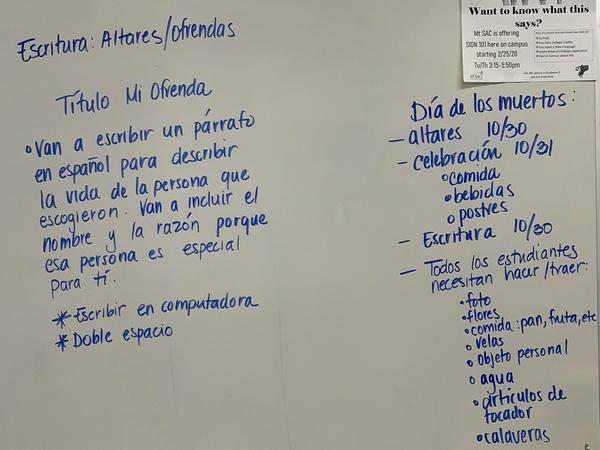 Escritura: Altares/Ofrendas
Título Mi Ofrenda
• Van a escribir un párrafo
en español para describir
la vida de la persona que
escogieron. Van a incluir el
nombre y la razón porque
esa persona es especial
para tí.
* Escribir en computadora
* Doble espacio
Want to know what this
says?
Mt SAC is offering
SIGN 101 here on campus
starting 2/25/20
Tu/Th 3:15-5:50pm
Día de los muertos:
— altares 10/30
— celebración 10/31
• comida
• bebidas
• postres
— Escritura 10/30
— Todos los estudiantes
necesitan hacer/traer:
• foto
• flores
• comida: pan, fruta, etc
• velas
• objeto personal
• agua
• artículos de
tocador
• calaveras